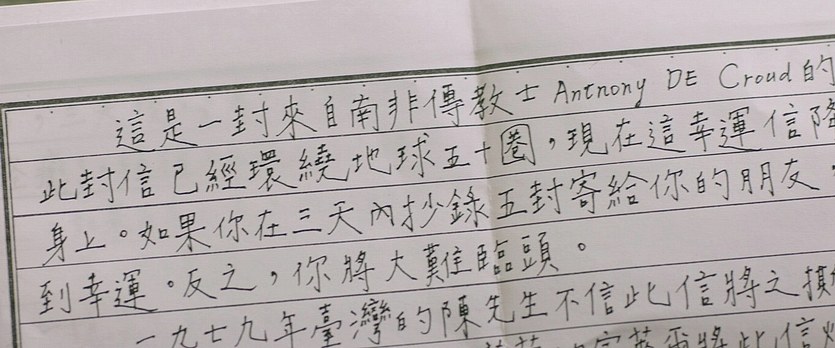 這是一封來自南非傳教士Antnony DE Croud的
此封信已經環繞地球五十圈,現在這幸運信降
身上。如果你在三天內抄錄五封寄給你的朋友,
到幸運。反之,你將大難臨頭。
一九七九年臺灣的陳先生不信此信將之
將此信